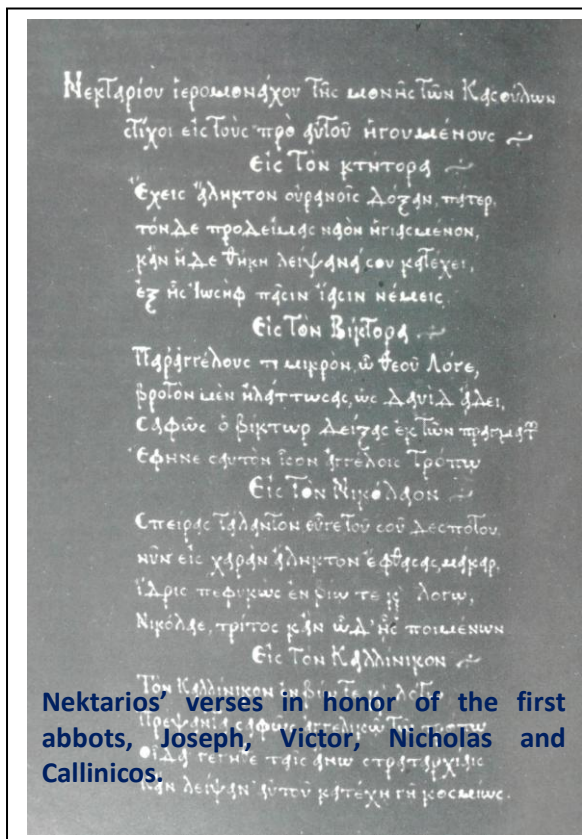 Νεκταρίου ἱερομονάχου τῆς μονῆς τῶν Κασούλων
στίχοι εἰς τοὺς πρὸ αὐτοῦ ἡγουμένους
Εἰς τὸν κτήτορα
Ἔχεις ἄληκτον οὐρανοῖς δόξαν, πάτερ,
τόνδε προδείμας ναὸν ἡγιασμένον,
κἂν ἥδε θήκη λείψανά σου κατέχει,
ἐξ ἧς Ἰωσὴφ πᾶσιν ἴασιν νέμεις.
Εἰς τὸν Βίκτορα
Παραγγέλους τι μικρὸν, ὦ θεοῦ Λόγε,
βροτὸν μὲν ἠλάττωσας, ὡς Δαυὶδ ᾄδει,
σαφῶς ὁ Βίκτωρ δείξας ἐκ τῶν πραγμάτ
ἔφηνε σαυτὸν ἶσον ἀγγέλοις τρόπῳ
Εἰς τὸν Νικόλαον
Σπείρας τάλαντον εὐγετοῦ σοῦ δεσπότου,
νῦν εἰς χαρὰν ἄληκτον ἔφθασας, μάκαρ,
ἴδρις πεφυκὼς ἐν βίῳ τε κ λόγῳ,
Νικόλαε, τρίτος κἂν ὧδ' ἧς ποιμένων
Εἰς τὸν Καλλίνικον
Τὸν Καλλίνικον
Nektarios' verses in honor of the first
abbots, Joseph, Victor, Nicholas and
Callinicos.
σαφῶς
γέγηθε ταῖς ἄνω στραταρχίαις
κἂν λείψαν' αὐτοῦ κατέχῃ γῆ κοσμίως.